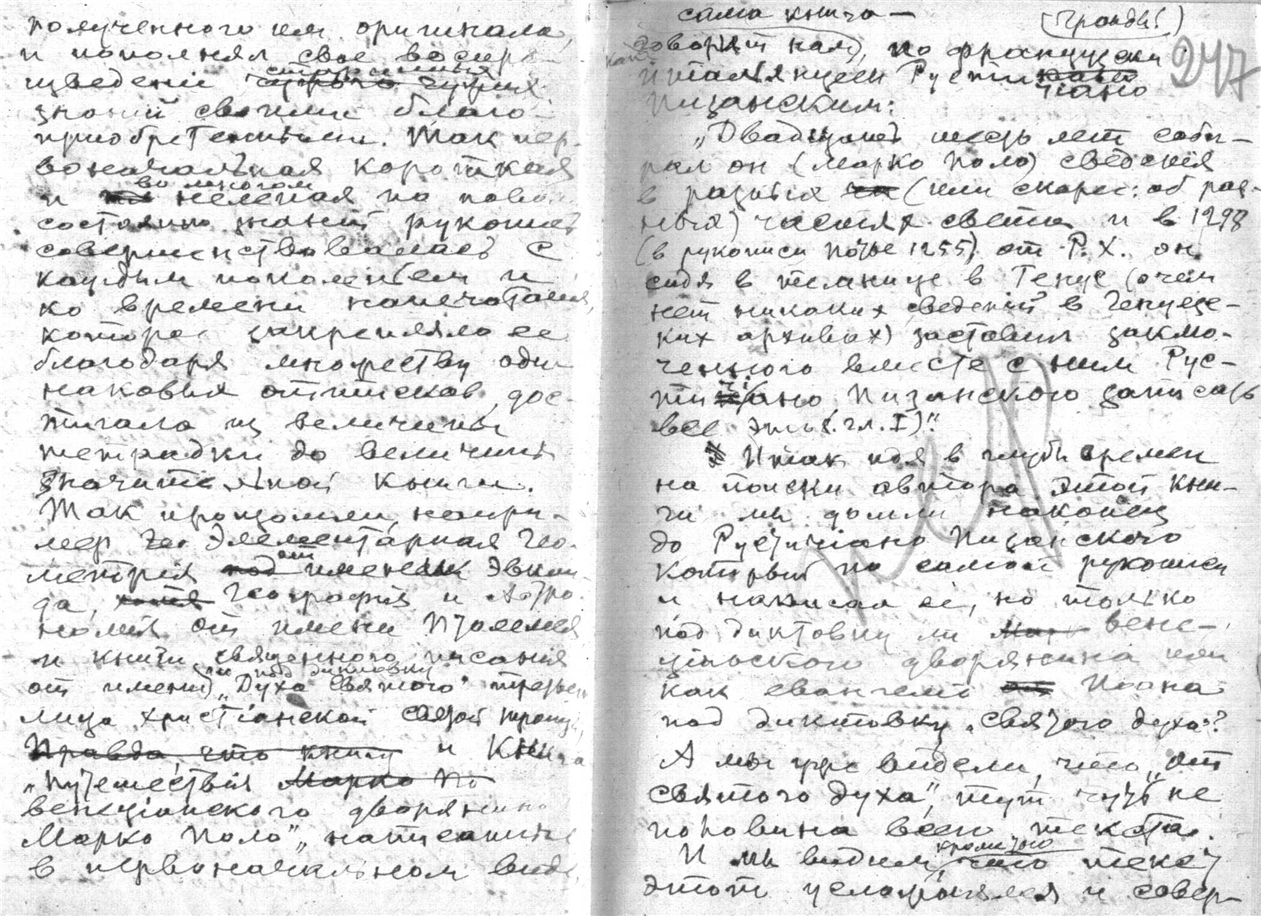 полученного им оригинала,
и пополнял свое воспро-
изведенiе
знанiй своими благо-
приобретенными. Так пер-
воначальная короткая
и во многом нелепая по
состоянию знанiй рукопись
совершенствовалась с
каждым поколенiем и
ко времени напечатанiя,
которое закрепляло ее
благодаря множеству оди-
наковых оттисков, дос-
тигала из величины
тетрадки до величины
значительной книги.
Так произошли, напри-
мер Элементарная Гео-
метрiя под от имени Эвкли-
да, хотя Географiя и Астро-
номiя от имени Птолемея
и книги священного писанiя
от имени и под диктовку „Духа Святого" третьего
лица христiанской святой троицы,
Правда, что книгу и Книга
„Путешествiя Марко По
венецiанского дворянина
Марко Поло", написанная
в первоначальном виде,
сама книга —
(Правды!)
247
говорит нам), по французски
итальянцем Рустичиано
Пизанским:
„Двадцать шесть лет соби-
рал он (Марко Поло) сведенiя
в разных ча (или скорее: об раз-
ных) частях света и в 1298
(в рукописи позже 1255) от Р. Х. он
сидя в темнице в Генуе (о чем
нет никаких сведенiй в Генуэзс-
ких архивах) заставил заклю-
ченного вместе с ним Рус-
тичиано Пизанского записать
все это (гл. I)."
Итак идя в глубь времен
на поиски автора этой кни-
ги мы дошли наконец
до Рустичиано Пизанского
который по самой рукописи
и написал ее, но только
под диктовку ли Мар вене-
цiанского дворянина или
как евангелiе Иоана
под диктовку „святого духа"?
А мы уже видели, что „от
святого духа", тут чуть не
половина всего текста.
И мы видим, кроме того что текст
этот услажнялся и совер-